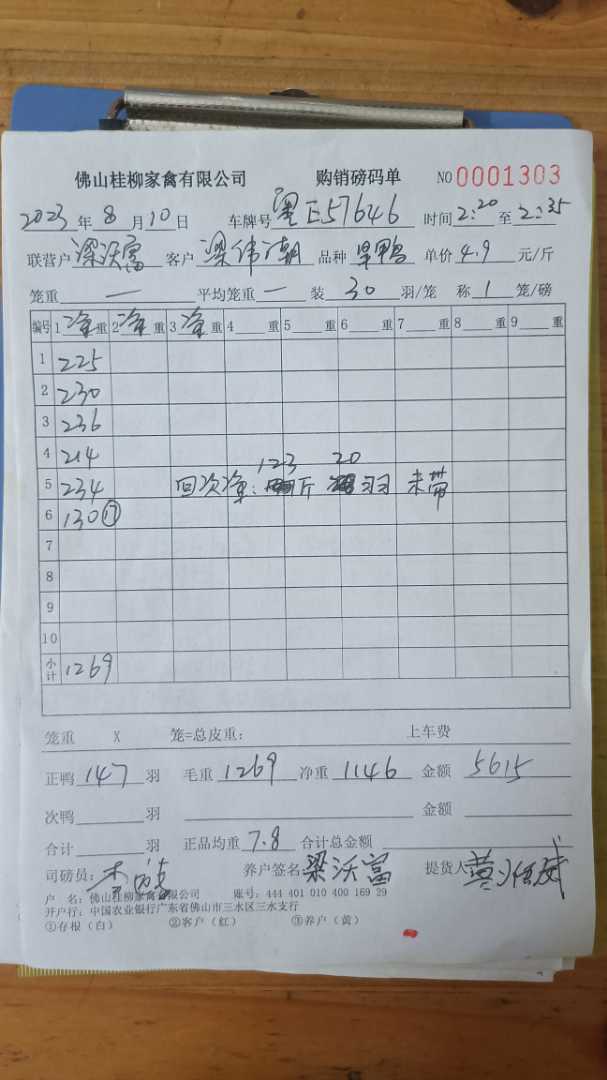 佛山桂柳家禽有限公司 购销磅码单 NO 0001303
2023年8月10日 车牌号 粤E57646 时间 2:20 至 2:35
联营户 梁沃富 客户 梁伟潮 品种 旱鸭 单价 4.9 元/斤
笼重 — 平均笼重 — 装 30 羽/笼 称 1 笼/磅
编号 1 净 重 2 净 重 3 净 重 4 重 5 重 6 重 7 重 8 重 9 重
1 225
2 230
3 236
4 214
123 20
5 234 回次净: 斤 羽 未带
6 130 ⑰
7
8
9
10
小计 1269
笼重 X 笼=总皮重: 上车费
正鸭 147 羽 毛重 1269 净重 1146 金额 5615
次鸭 羽 金额
合计 羽 正品均重 7.8 合计总金额
司磅员: 养户签名 梁沃富 提货人
户 名: 佛山桂柳家禽有限公司 账号: 444 401 010 400 169 29
开户行: 中国农业银行广东省佛山市三水区三水支行
①存根(白) ②客户(红) ③养户(黄)